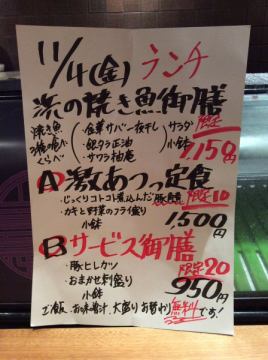 11/4(金) ランチ
浜の焼き魚御膳
焼き魚 3種の食べくらべ
・金華サバ一夜干し
・銀ダラ正油
・サワラ柚庵
サラダ
小鉢
限定
1,150円
A 激あつっ定食
・じっくりコトコト煮込んだ豚角煮 限定10
・カキと野菜のフライ盛り
小鉢
1,500円
B サービス御膳
限定20
・豚ヒレカツ
・おまかせ刺盛り
小鉢
950円
ご飯、お味噌汁、大盛りお替わり無料です!